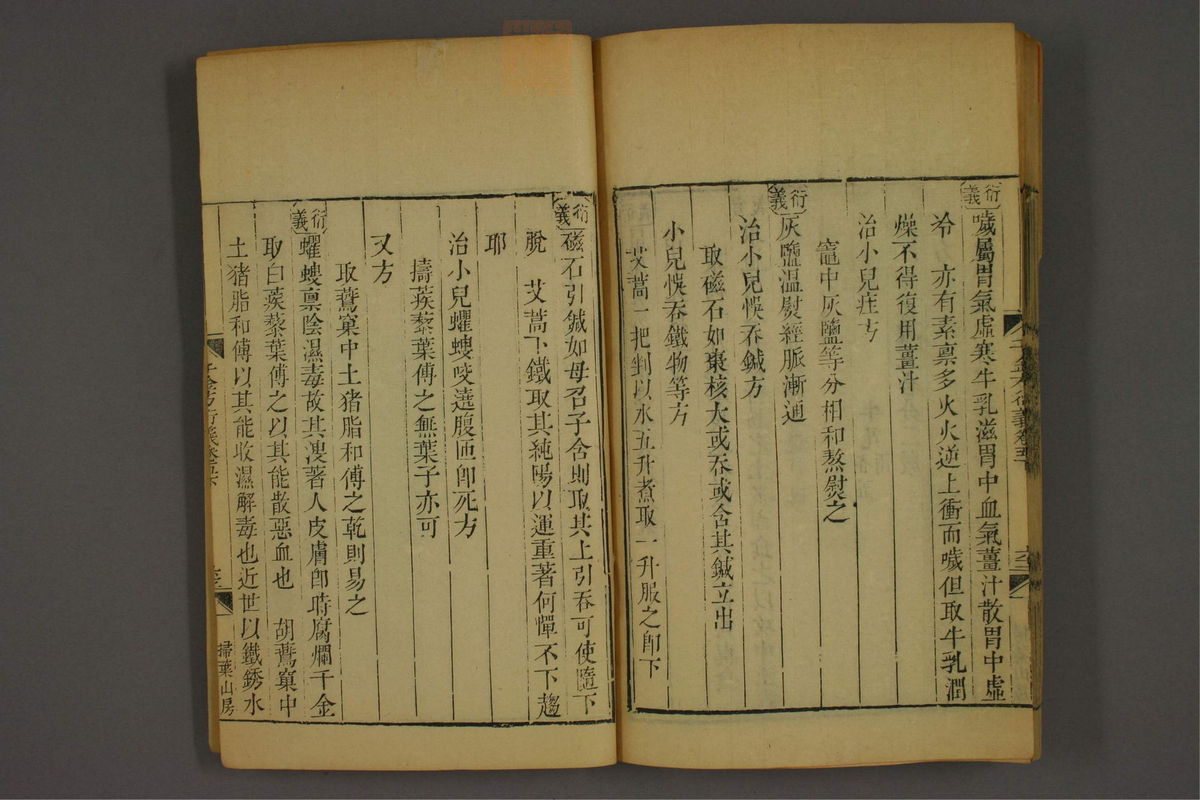 衍義 噦屬胃氣虛寒牛乳滋胃中血氣薑汁散胃中虛
冷 亦有素禀多火火逆上衝而噦但取牛乳潤
燥不得復用薑汁
治小兒疰方
竈中灰鹽等分相和熬熨之
衍義 灰鹽温熨經脈漸通
治小兒悞吞鍼方
取磁石如棗核大或吞或含其鍼立出
小兒悞吞鐵物等方
艾蒿一把剉以水五升煮取一升服之卽下
衍義 磁石引鍼如母召子含則取其上引吞可使隨下
脫 艾蒿下鐵取其純陽以運重著何憚不下趨
耶
治小兒蠼螋咬遶腹匝卽死方
擣蒺藜葉傅之無葉子亦可
又方
取鷰窠中土猪脂和傅之乾則易之
衍義 蠼螋禀陰濕毒故其溲著人皮膚卽時腐爛千金
取白蒺藜葉傅之以其能散惡血也 胡鷰窠中
土猪脂和傅以其能收濕解毒也近世以鐵銹水
千金方衍義卷五下
掃葉山房